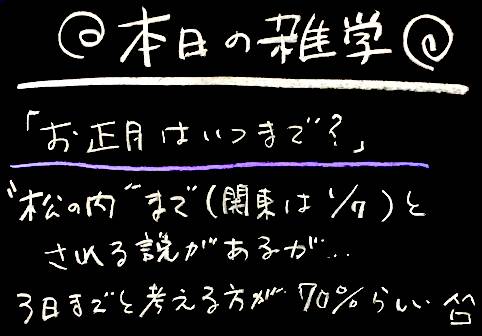 @本日の雑学@
「お正月はいつまで?」
"松の内"まで(関東は1/7)と
される説があるが…
3日までと考える方が70%らしい